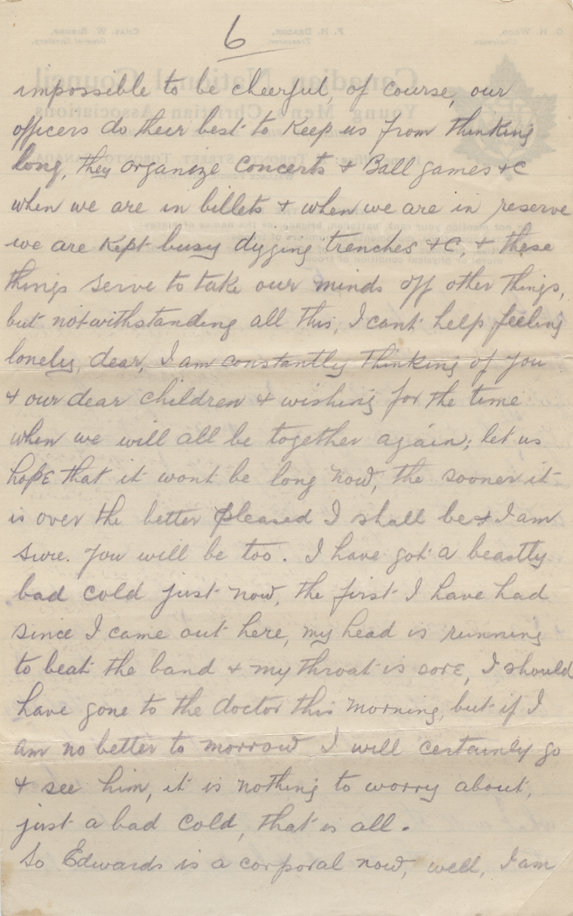 6
impossible to be cheerful, of course, our
officers do their best to keep us from thinking
long, they organize concerts & Ball games &c
when we are in billets & when we are in reserve
we are kept busy digging trenches &c, & these
things serve to take our minds off other things,
but notwithstanding all this, I cant help feeling
lonely, dear, I am constantly thinking of you
& our dear children & wishing for the time
when we will all be together again; let us
hope that it wont be long now, the sooner it
is over the better pleased I shall be & I am
sure. you will be too. I have got a beastly
bad cold just now, the first I have had
since I came out here, my head is running
to beat the band & my throat is sore, I should
have gone to the doctor this morning, but if I
am no better to morrow I will certainly go
& see him, it is nothing to worry about,
just a bad cold, that is all.
So Edwards is a corporal now, well, I am